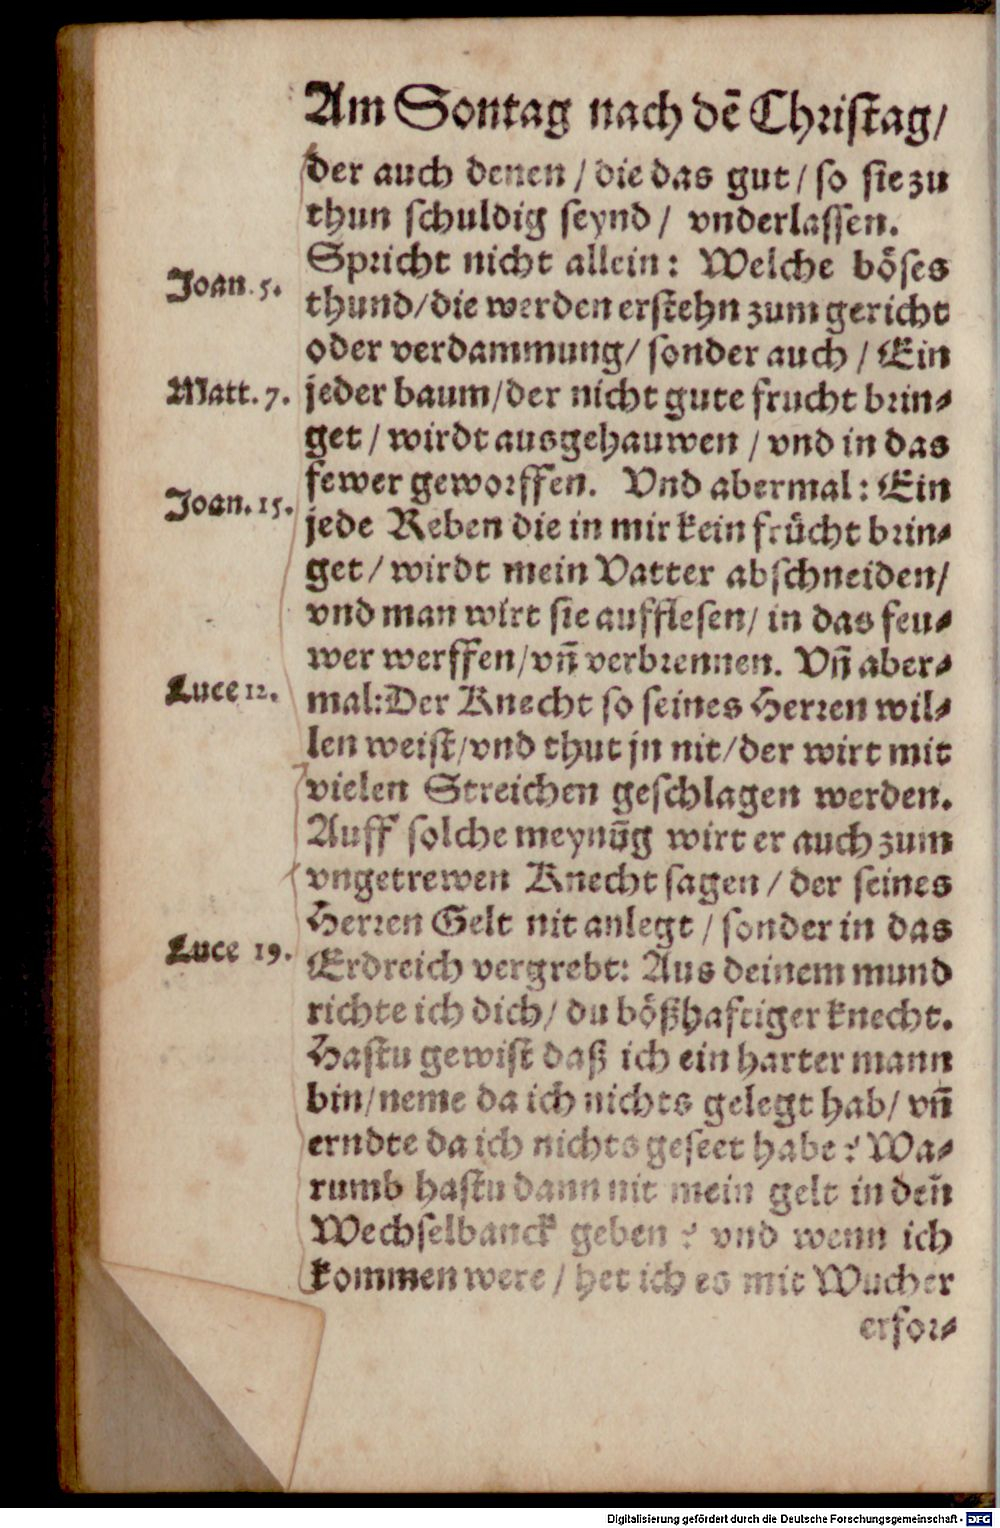 Am Sontag nach dẽ Christag/
der auch denen / die das gut / so sie zu
thun schuldig seynd / vnderlassen.
Spricht nicht allein: Welche böses
Joan. 5.
thund/die werden erstehn zum gericht
oder verdammung/ sonder auch / Ein
Matt. 7.
jeder baum/der nicht gute frucht brin⸗
get / wirdt ausgehauwen / vnd in das
fewer geworffen. Vnd abermal: Ein
Joan. 15.
jede Reben die in mir kein frücht brin⸗
get / wirdt mein Vatter abschneiden/
vnd man wirt sie aufflesen/ in das feu⸗
wer werffen/vñ verbrennen. Vñ aber⸗
Luce 12.
mal:Der Knecht so seines Herren wil⸗
len weist/vnd thut jn nit/der wirt mit
vielen Streichen geschlagen werden.
Auff solche meynũg wirt er auch zum
vngetrewen Knecht sagen / der seines
Herren Gelt nit anlegt / sonder in das
Luce 19.
Erdreich vergrebt: Aus deinem mund
richte ich dich/ du bößhaftiger knecht.
Hastu gewist daß ich ein harter mann
bin/neme da ich nichts gelegt hab/ vñ
erndte da ich nichts geseet habe? Wa⸗
rumb hastu dann nit mein gelt in deñ
Wechselbanck geben? vnd wenn ich
kommen were / het ich es mit Wucher
erfor⸗
Digitalisierung gefördert durch die Deutsche Forschungsgemeinschaft - DFG